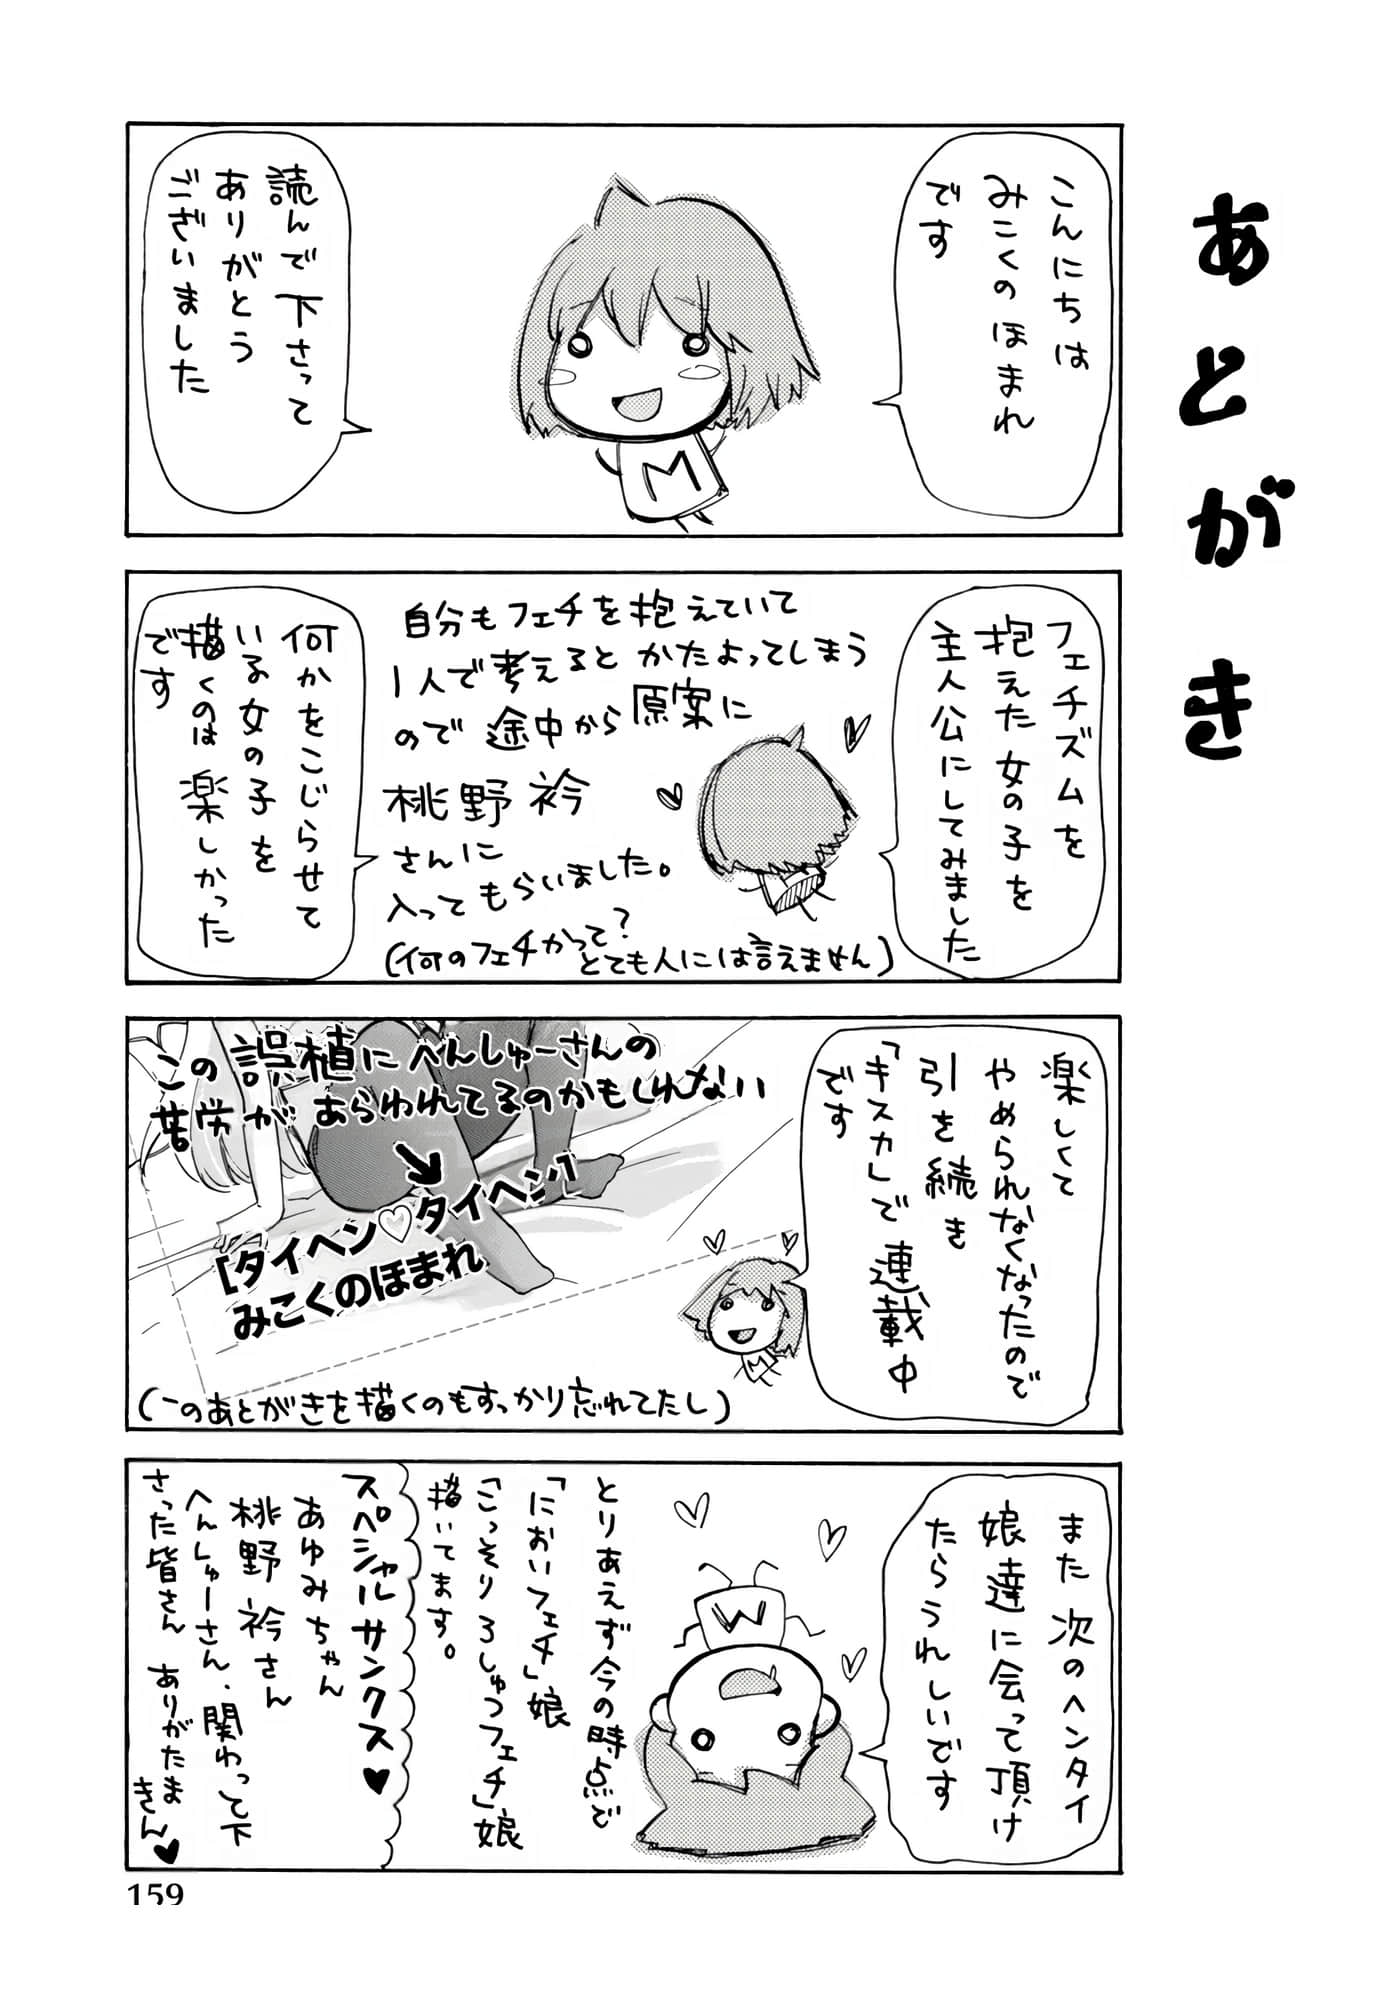 あとがき
こんにちは
みこくのほまれ
です
読んで下さって
ありがとう
ございました
フェチズムを
抱えた女の子を
主人公にしてみました
自分もフェチを抱えていて
1人で考えるとかたよってしまう
ので途中から原案に
桃野衿
さんに
入ってもらいました。
(何のフェチかって?
とても人には言えません)
何かをこじらせて
いる女の子を
描くのは楽しかった
です
楽しくて
やめられなくなったので
引き続き
「キスカ」で連載中
です
この誤植にへんしゅーさんの
苦労があらわれてるのかもしれない
[タイヘン♡タイヘン]
みこくのほまれ
(このあとがきを描くのもすっかり忘れてたし)
また次のヘンタイ
娘達に会って頂け
たらうれしいです
とりあえず今の時点で
「においフェチ」娘
「こっそりろしゅつフェチ」娘
描いてます。
スペシャルサンクス♥
あゆみちゃん
桃野衿さん
へんしゅーさん、関わって下
さった皆さん ありがたま
きん♥
M
M
M
159